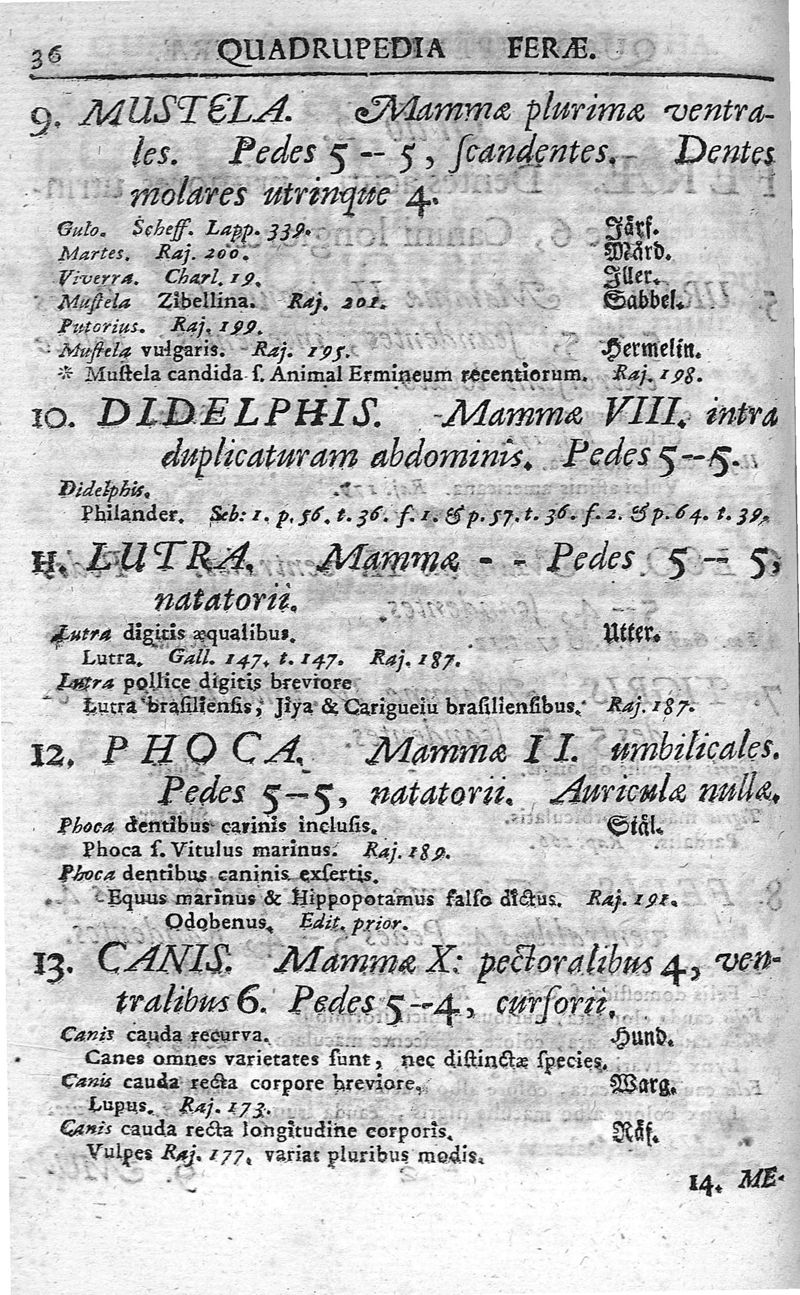 36 QUADRUPEDIA FERÆ.
9. MUSTELA. Mammæ plurimæ ventra-
les. Pedes 5 -- 5, ſcandentes. Dentes
molares utrinque 4.
Gulo. Scheff. Lapp. 339. Järf.
Martes. Raj. 200. Mård.
Viverra. Charl. 19. Iller.
Muſtela Zibellina. Raj. 201. Sabbel.
Putorius. Raj. 199.
Muſtela vulgaris. Raj. 195. Hermelin.
* Muſtela candida ſ. Animal Ermineum recentiorum. Raj. 198.
10. DIDELPHIS. Mammæ VIII. intra
duplicaturam abdominis. Pedes 5--5.
Didelphis.
Philander. Seb: 1. p. 56. t. 36. f. 1. & p. 57. t. 36. f. 2. & p. 64. t. 39.
11. LUTRA. Mammæ - - Pedes 5 -- 5,
natatorii.
Lutra digitis æqualibus. Utter.
Lutra. Geſſ. 147. t. 147. Raj. 187.
Lutra pollice digitis breviore
Lutra braſilienſis, Jiya & Carigueiu braſilienſibus. Raj. 187.
12. PHOCA. Mammæ II. umbilicales.
Pedes 5--5, natatorii. Auriculæ nullæ.
Phoca dentibus carinis incluſis. Siäl.
Phoca ſ. Vitulus marinus. Raj. 189.
Phoca dentibus caninis exſertis.
Equus marinus & Hippopotamus falſo dictus. Raj. 191.
Odobenus. Edit. prior.
13. CANIS. Mammæ X: pectoralibus 4, ven-
tralibus 6. Pedes 5--4, curſorii.
Canis cauda recurva. Hund.
Canes omnes varietates ſunt, nec diſtinctæ ſpecies.
Canis cauda recta corpore breviore. Warg.
Lupus. Raj. 173.
Canis cauda recta longitudine corporis. Räf.
Vulpes Raj. 177. variat pluribus modis.
14. ME-